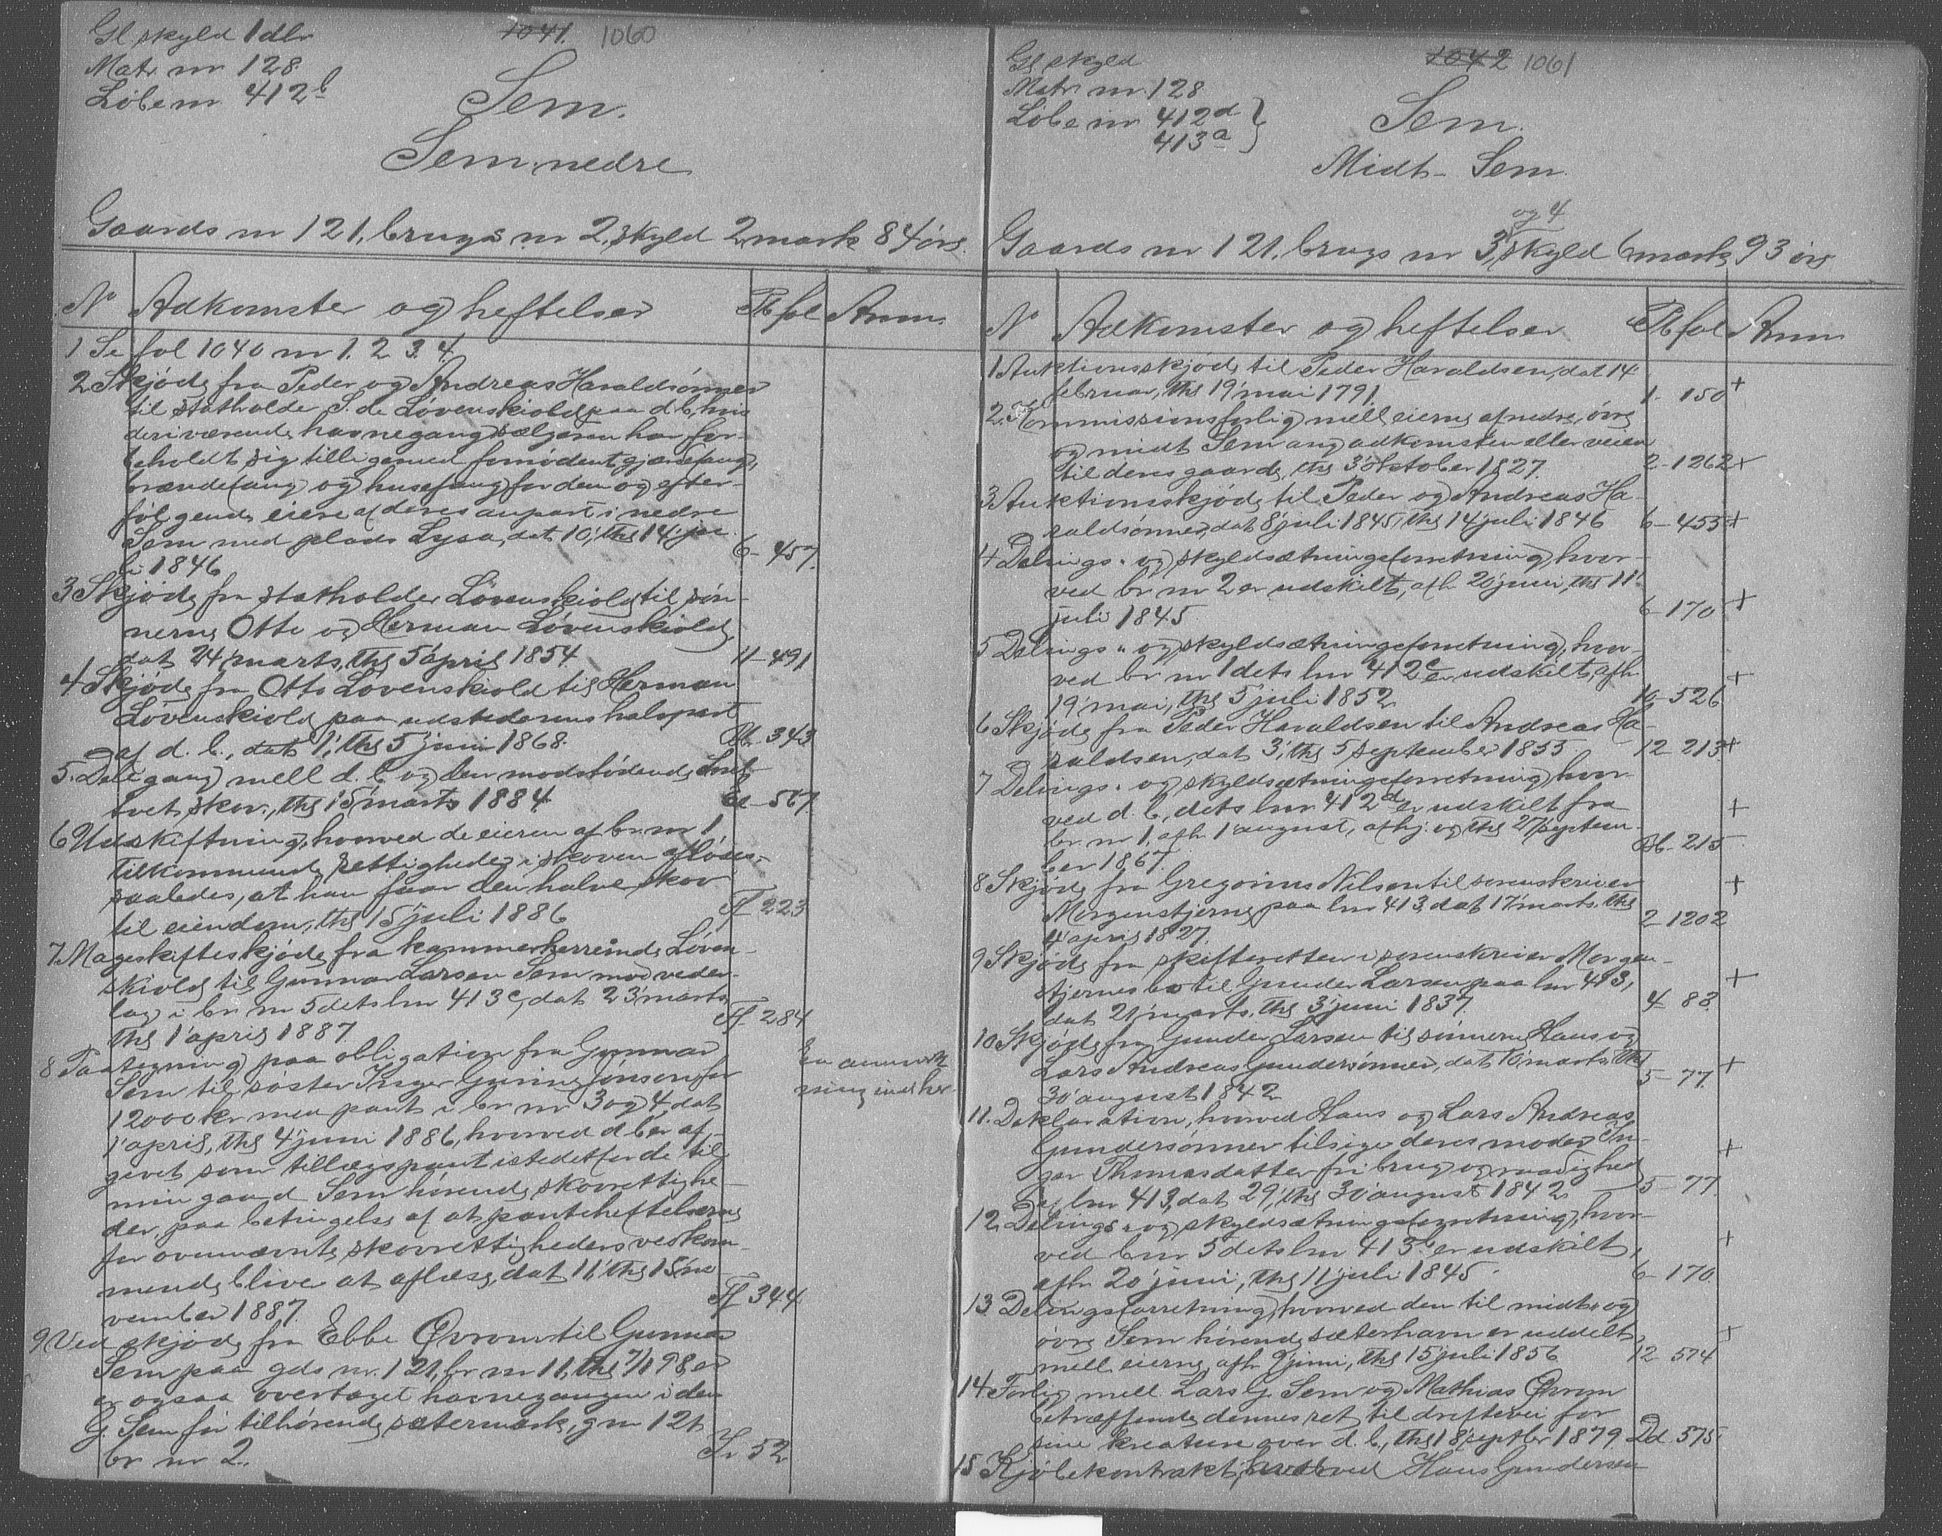 Gl skyld 1 dlr
Matr nr 128.
Löbenr 412b
1041. 1060
Sem.
Sem nedre
Gaards nr 121, brugs nr 2, skyld 2 mark 84 öre.
N Adkomster og heftelser Pb fol Anm.
1 Se fol 1040 nr 1. 2. 3. 4.
2 Skjöde fra Peder og Andreas Haraldsönner
til statholder S. de Lövenskiold paa d. b., hvis
deri værende havnegang sælgeren har for-
beholdt sig tilligemed fornödent gjærdefang,
brændefang og husefang for dem og efter-
fölgende eiere af deres anpart i nedre
Sem med plads Lysa, dat 10, thg 14 ju-
li 1846 6- 457.
3 Skjöde fra statholder Lövenskiold til sön-
nerne Otto og Herman Lövenskiold,
dat 24 marts, thg 5 april 1854 11- 491
4 Skjöde fra Otto Lövenskiold til Herman
Lövenskiold paa udstederens halvpart
af d. b., dat 1, thg 5 juni 1868. Ab. 343
5. Delegang mell d. b. og den modstödende
skov., thg 15 marts 1884 567.
6 Udskiftning, hvorved de eieren af br nr 1
tilkommende rettigheder i skoven aflöses
saaledes, at han faar den halve skov
til eiendom, thg 15 juli 1886 Ff 223
7. Mageskifteskjöde fra kammerherreinde Löven-
skiold til Gunnar Larsen Sem mod veder-
lag i br nr 5 dets lnr 413c, dat 23 marts,
thg 1 april 1887. Ff 284
8 Paategning paa obligation fra Gunnar
Sem til söster Inger Gurine Jönsen for
12000 kr med pant i br nr 3 og 4 dat
1 april, thg 4 juni 1886, hvorved d b er af-
givet som tillægspant istedetfor de til
min gaard Sem hörende skovrettighe-
der, paa betingelse af at panteheftelserne
for ovennævnte skovrettigheders vedkom-
mende blive at aflæse, dat 11, thg 15 no-
vember 1887. Ff 344
En anmærk
ning
9 Ved skjöde fra Ebbe Övrom til Gunnar
Sem paa gds nr. 121, br nr 11, thg 7/1 98, er
er ogsaa overtaget havnegangen i den
G. Sem för tilhörende sætermark, g nr 121
br nr 2. Fr 52
Gl skyld
Matr nr 128
Löbe nr 412d
413a }
1042 1061
Sem.
Midt- Sem.
og 4
Gaards nr 121. brugs nr 3, skyld 6 mark 93 öre
N Adkomster og heftelser Pb fol Anm
1 Auktionsskjöde til Peder Haraldsen, dat 14
februar, thg 19 mai 1791. 1- 150 +
2. Kommissionsforlig mell eierne af nedre, övre
og midt Sem ang adkomsten eller veien
til deres gaarde, thg 3 oktober 1827. 2- 1262 +
3 Auktionsskjöde til Peder og Andreas Ha-
raldsönner, dat 8 juli 1845, thg 14 juli 1846 6- 455 +
4 Delings- og skyldsætningsforretning, hvor-
ved br nr 2 er udskilt, afh 20 juni, thg 11
juli 1845 6- 170 +
5 Delings- og skyldsætningsforretning, hvor-
ved br nr 1 dets lnr 412c er udskilt, afh
19 mai, thg 5 juli 1852 10- 526 +
6 Skjöde fra Peder Haraldsen til Andreas Ha-
raldsen, dat 3, thg 5 september 1853 12 213 +
7 Delings- og skyldsætningsforretning, hvor-
ved d. b., dets lnr 412d er udskilt fra
br nr 1, afh 1 august, afhj. og thg 27 septem-
ber 1867. Ab. 215 +
8 Skjöde fra Gregorius Nilsen til sorenskriver
Morgenstjerne paa lnr 413, dat 17 marts, thg
4 april 1827. 2 1202 +
9 Skjöde fra skifteretten i sorenskriver Morgen-
stjernes bo til Gunder Larsen paa lnr 413,
dat 21 marts, thg 3 juni 1837. 4- 83. +
10 Skjöde fra Gunder Larsen til sönnerne Hans og
Lars Andreas Gundersönner, dat 16 marts, thg
30 august 1842 5- 77. +
11. Deklaration, hvorved Hans og Lars Andreas
Gundersönner tilsiger deres moder In-
ger Thomasdatter fri brug og raadighed
over lnr 413, dat 29, thg 30 august 1842 5- 77 +
12 Delings- og skyldsætningsforretning, hvor-
ved br nr 5 dets lnr 413b er udskilt,
afh 20 juni, thg 11 juli 1845. 6- 170 +
13 Delingsforretning, hvorved den til midt- og
övre Sem hörende sæterhavn er uddelt
mell eierne, afh 9 juni, thg 15 juli 1856 12 574 +
14 Forlig mell. Lars G. Sem og Mathias Övrom
betræffende dennes ret til driftevei for
sine kreature over d. b., thg 18 septbr 1879. Dd 575
15 Kjöbekontrakt, hvorved Hans Gundersen